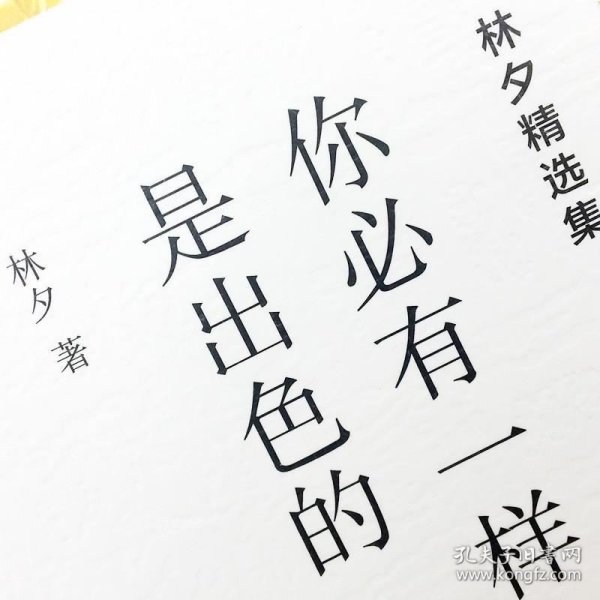 林夕精选集
你必有一样
是出色的
林夕 著
孔夫子旧书网
www.kongfz.com